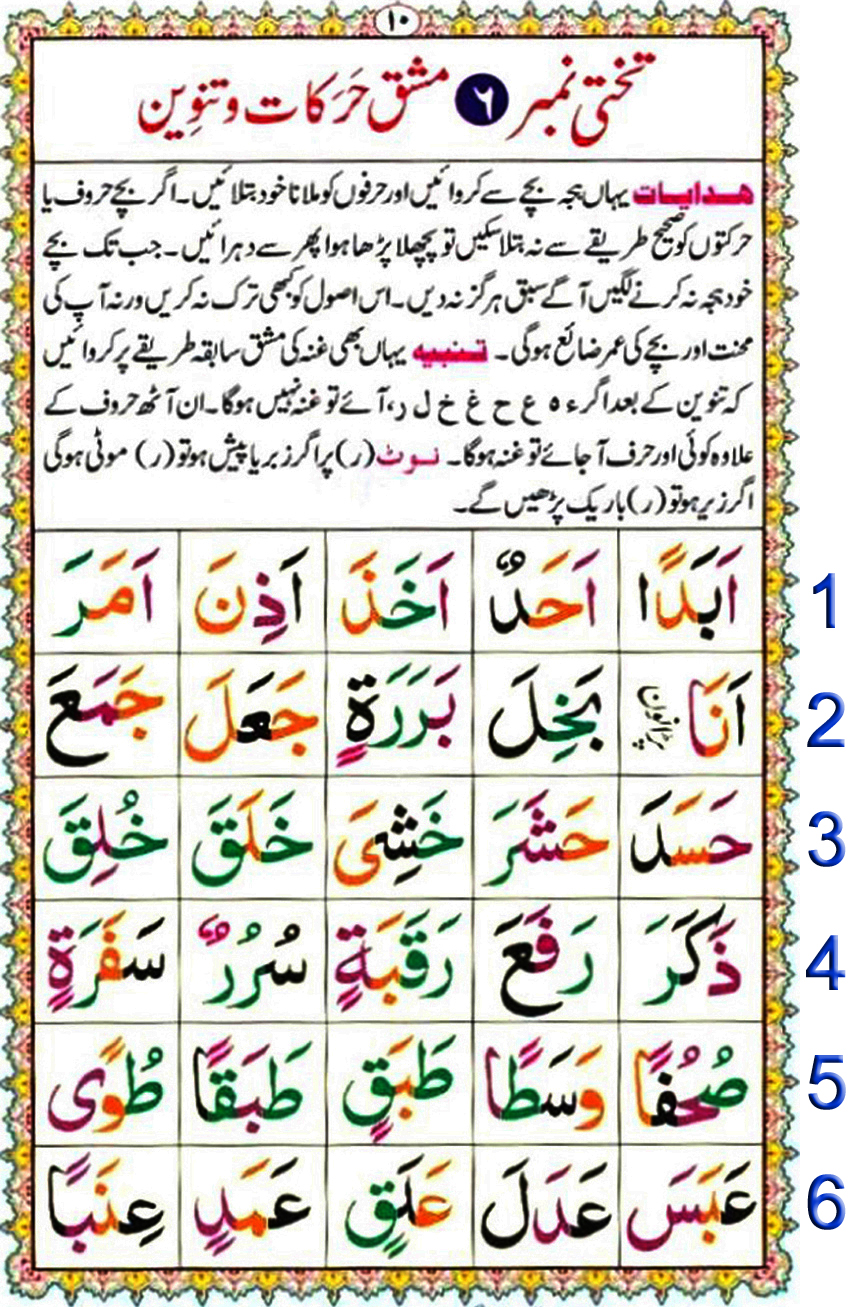 ١٠
تختی نمبر ٦ مشق حَرَکات و تنوِین
ھدایات یہاں ہجہ بچے سے کروائیں اور حرفوں کو ملانا خود بتلائیں۔ اگر بچے حروف یا
حرکتوں کو صحیح طریقے سے نہ بتلا سکیں تو پچھلا پڑھا ہوا پھر سے دہرائیں۔ جب تک بچے
خود ہجہ نہ کرنے لگیں آگے سبق ہرگز نہ دیں۔ اس اصول کو کبھی ترک نہ کریں ورنہ آپ کی
محنت اور بچے کی عمر ضائع ہوگی۔ تنبیہ یہاں بھی غنہ کی مشق سابقہ طریقے پر کروائیں
کہ تنوین کے بعد اگر ء ہ ع ح غ خ ل ر، آئے تو غنہ نہیں ہوگا۔ ان آٹھ حروف کے
علاوہ کوئی اور حرف آجائے تو غنہ ہوگا۔ نوٹ (ر) پر اگر زبر یا پیش ہو تو (ر) موٹی ہوگی
اگر زیر ہو تو (ر) باریک پڑھیں گے۔
اَبَدًا اَحَدٌ اَخَذَ اَذِنَ اَمَرَ 1
اَنَا بَخِلَ بَرَرَةٍ جَعَلَ جَمَعَ 2
حَسَدَ حَشَرَ خَشِیَ خَلَقَ خُلِقَ 3
ذَکَرَ رَفَعَ رَقَبَةٍ سُرُرٌ سَفَرَةٍ 4
صُحُفًا وَسَطًا طَبَقٍ طَبَقًا طُوًی 5
عَبَسَ عَدَلَ عَلَقٍ عَمَدٍ عِنَبًا 6